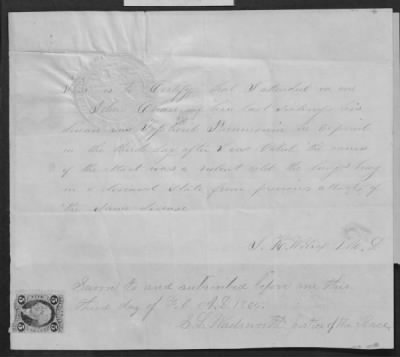 This is to Certify that I attended on one
John Chase in his last sickness his
disease was Typhoid Pneumonia he expired
on the third day after I was Called the cause
of the attack was a violent cold the lungs being
in a diseased state from previous attacks of
the same disease
M. D.
Sworn to and subscribed before me this
third day of Feb A. D.
Wadsworth Justice of the Peace